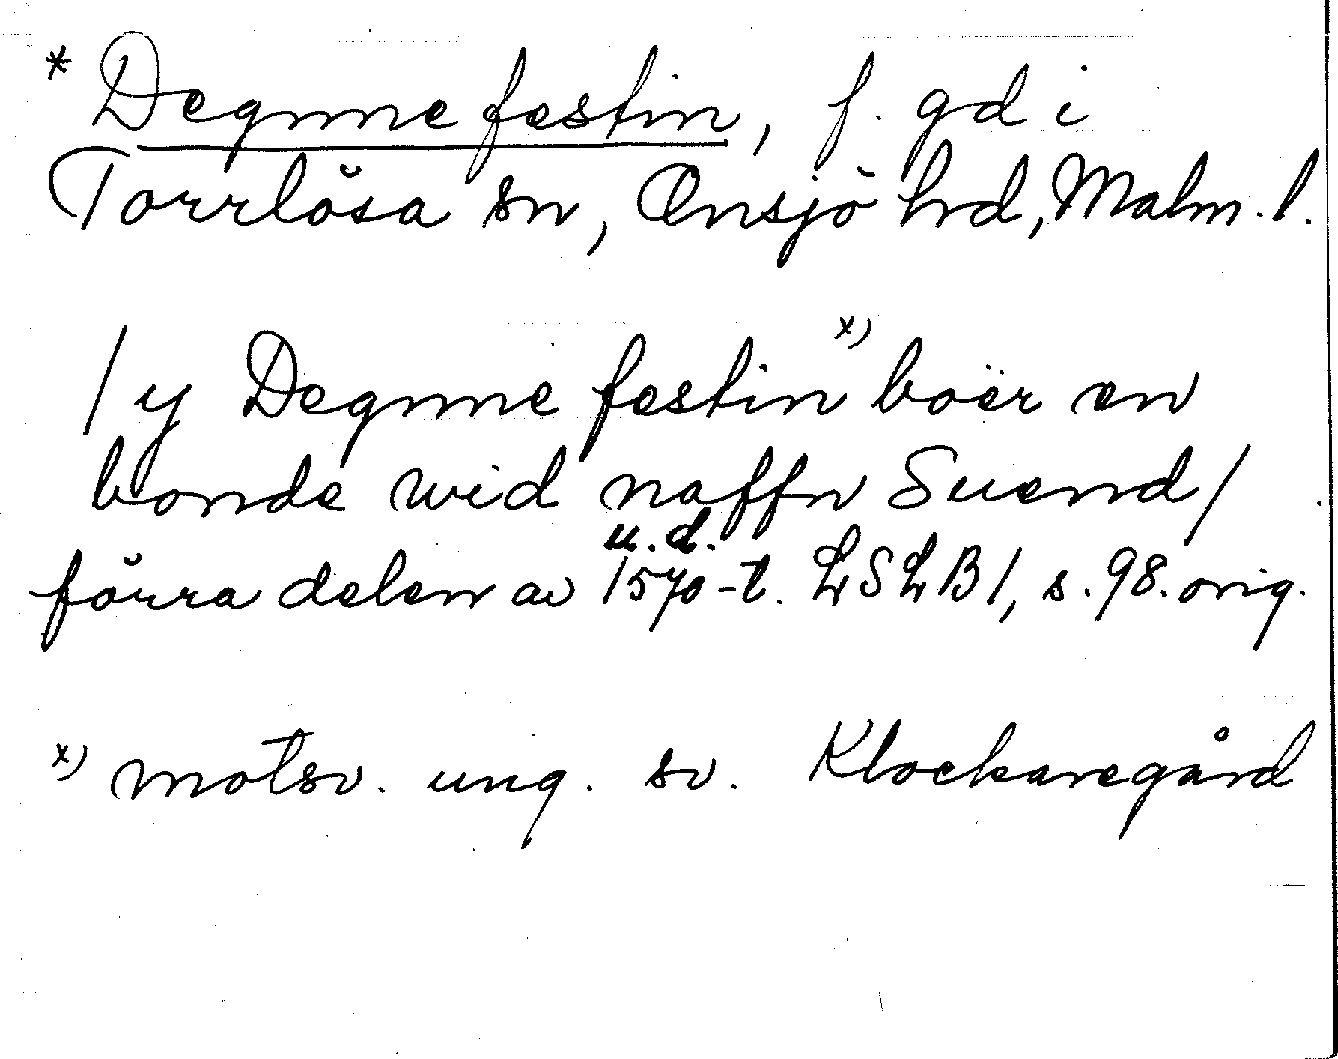 * Degnnefestin, f. gd i
Torrlösa sn, Onsjö hrd, Malm. l.
/ y Degnne festin x) boër en
bonde wid naffn Suend /
u. d.
förra delen av 1570-t. LSLB 1, s. 98. orig.
x) motsv. ung. sv. Klockaregård